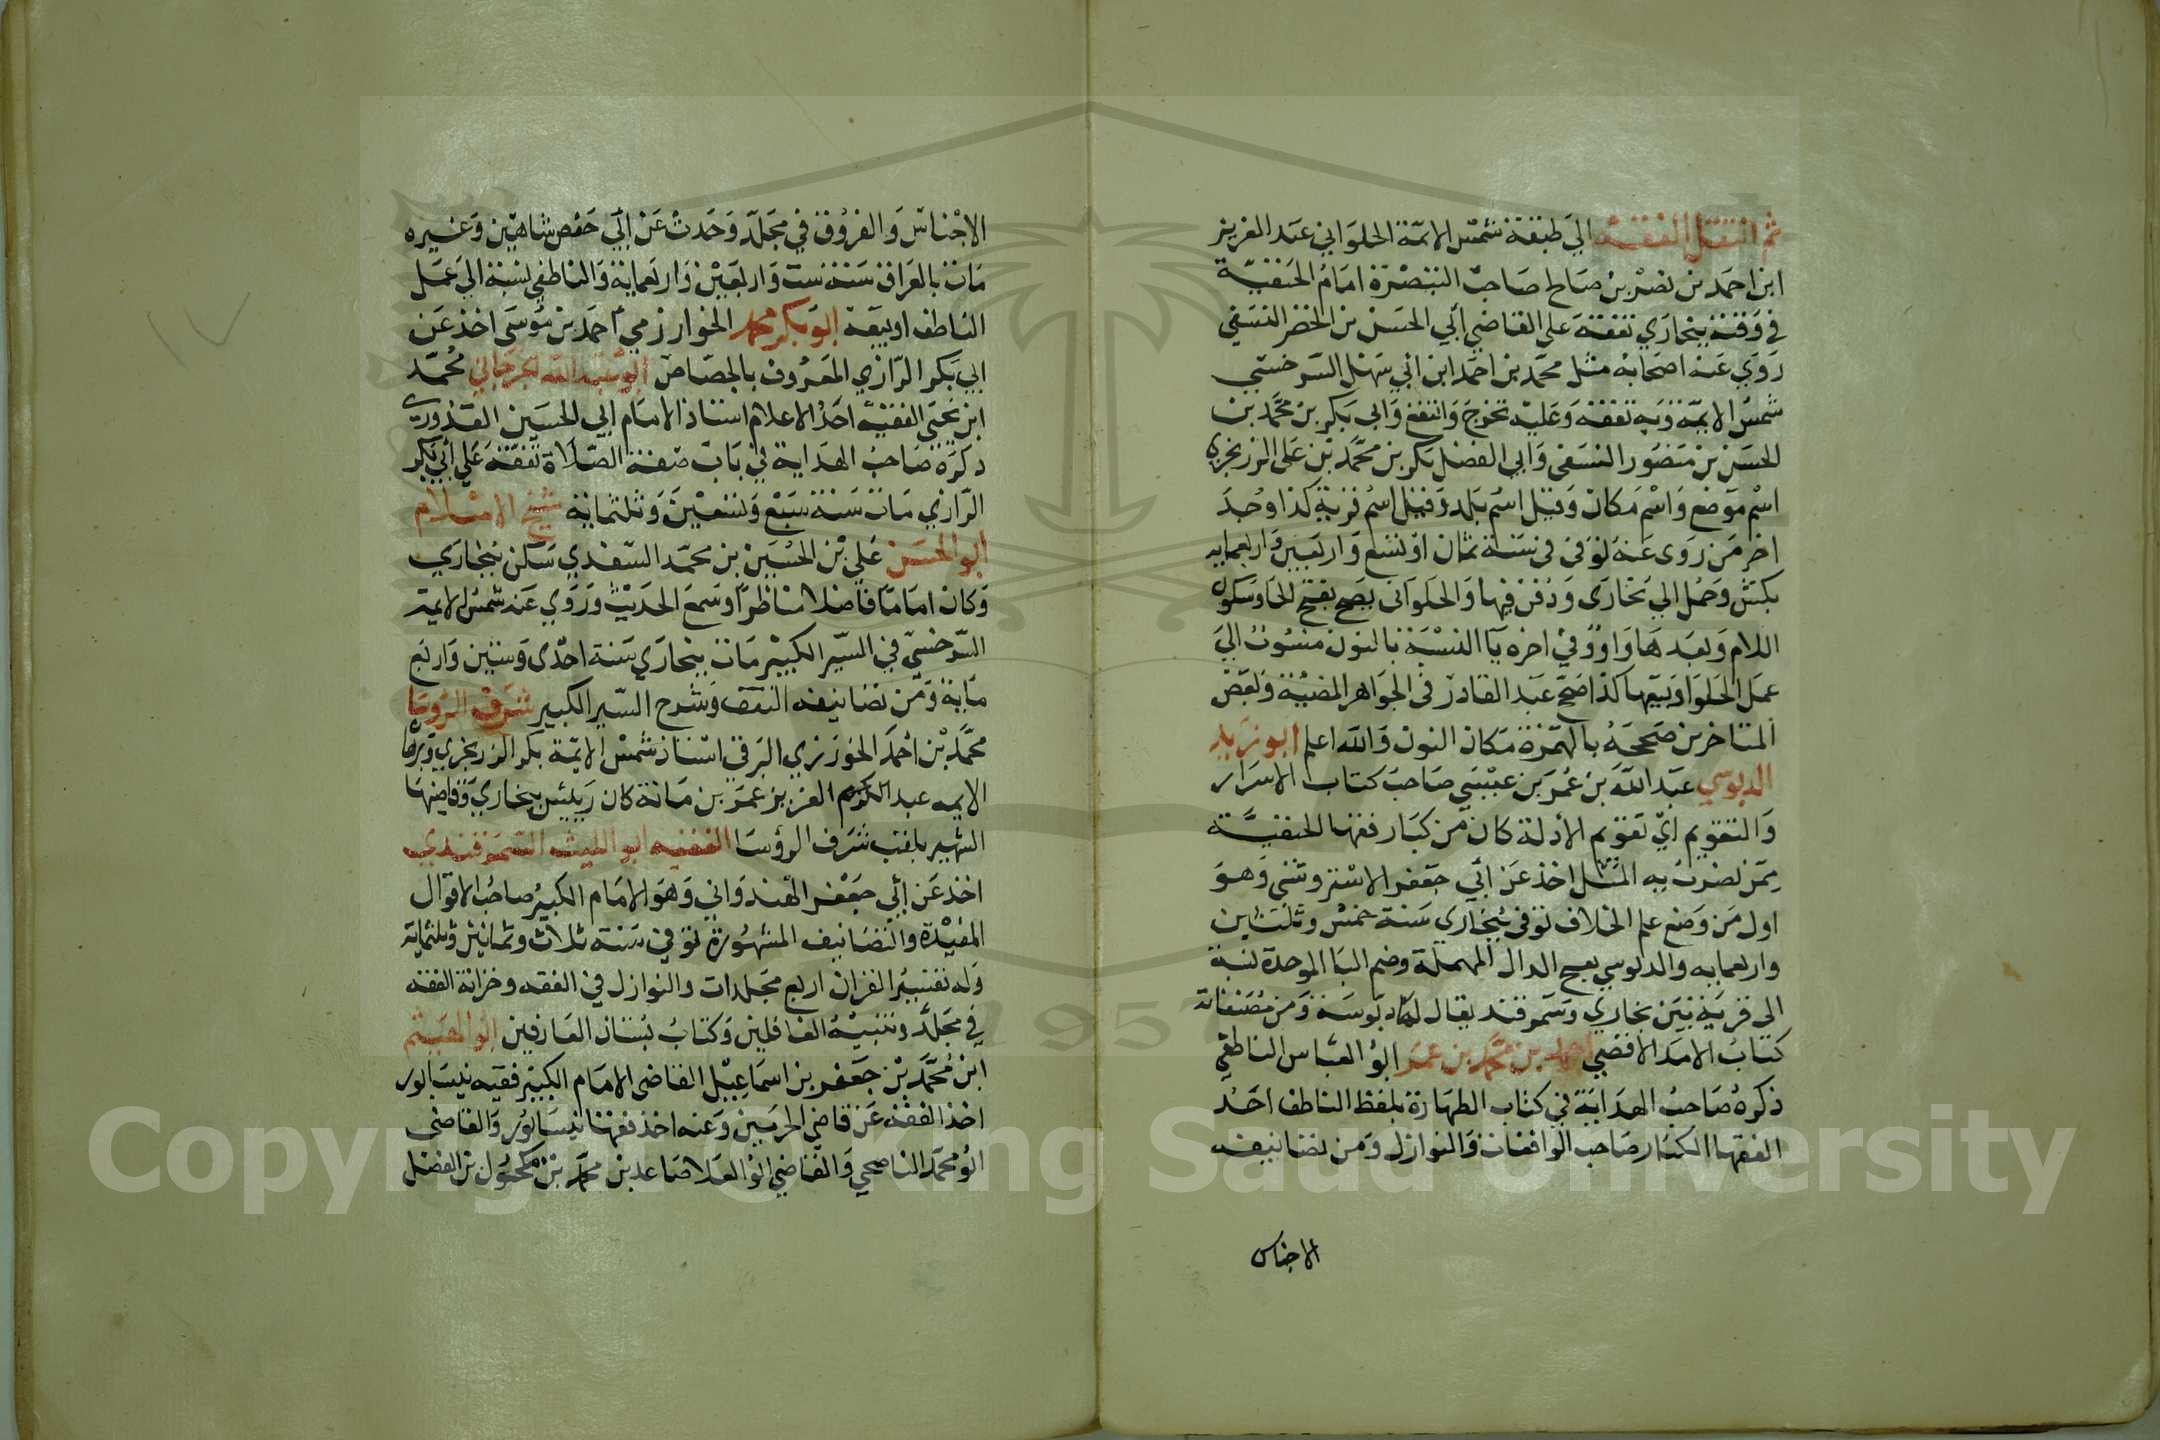 ثم انتقل الفقه الي طبقة شمس الائمة الحلواني عبد العزيز
ابن احمد بن نصر بن صالح صاحب التبصرة امام الحنفية
في وقته ببخاري تفقه علي القاضي أبي الحسين بن الخضر النسفي
روي عنه اصحابه مثل محمد بن احمد ابن أبي سهل السرخسي
شمس الايمة وبه تفقه وعليه تخرج وانتفع وابي بكر بن محمد بن
الحسن بن منصور النسفى وابي الفضل بكر بن محمد بن على الزرنجري
اسم موضع واسم مكان وقيل اسم بلد وقيل اسم قرية كذا وجد
اخر من روى عنه توفى فى سنة ثمان او تسع واربعين واربعمايه
بكش وحمل الي بخارى ودفن فيها والحلوانى يصح بفتح الحا وسكون
اللام وبعدها واو وفي اخره يآ النسبة بالنون منسوب الي
عمل الحلوا وبيعها كذا صح عبد القادر فى الجواهر المضيئة وبعض
المتاخرين صححه بالهمزة مكان النون والله اعلم ابو زيد
الدبوسي عبد الله بن عمر بن عيسي صاحب كتاب الاسرار
والتقويم اي تقويم الأدلة كان من كبار فقها الحنفية
ممن نضرب به المثل اخذ عن أبي جعفر الاستروشني وهو
اول من وضع علم الخلاف توفى ببخارى سنة خمس وثلثين
واربعمايه والدبوسي بفتح الدال المهملة وضم البا الموحدة نسبة
الى قرية بين بخاري وسمرقند يقال لها دبوسة ومن مصنفاته
كتاب الامد الاقصي احمد بن محمد بن عمر ابو العباس الناطفي
ذكره صاحب الهداية في كتاب الطهارة بلفظ الناطف احد
الفقها الكبار صاحب الواقعات والنوازل ومن تصانيفه
الاجناس
الاجناس والفروق في مجلد وحدث عن أبي حفص شاهين وغيره
مات بالعراق سنة ست واربعين واربعماية والناطفي نسبة الي عمل
الناطف او بيعه ابو بكر محمد الخوارزمي احمد بن موسى اخذ عن
ابي بكر الرازي المعروف بالجصاص ابو عبد الله الجرجاني محمد
ابن يحيى الفقيه احد الاعلام استاذ الامام ابي الحسين القدوري
ذكره صاحب الهداية في باب صفة الصلاة تفقه علي أبي بكر
الرازي مات سنة سبع وتسعين وثلثماية شيخ الاسلام
ابو الحسن علي بن الحسين بن محمد السغدي سكن ببخاري
وكان اماما فاضلا مناظرا وسمع الحديث وروي عنه شمس الايمة
السرخسي في السير الكبير مات ببخاري سنة احدى وستين واربع
ماية ومن تصانيفه النتف وشرح السير الكبير شرف الروسا
محمد بن احمد الخورزي البرقي استاذ شمس الايمة بكر الزرنجري وبرهان
الايمه عبد الكريم العزيز عمر بن مازة كان رييس بخاري وقاضيها
الشهير بلقب شرف الرؤسا الفقيه ابو الليث السمرقندي
اخذ عن أبي جعفر الهندواني وهو الامام الكبير صاحب الاقوال
المفيدة والتصانيف المشهورة توفي سنة ثلاث وثمانين وثلثماية
وله تفسير القران اربع مجلدات والنوازل في الفقه وخزانة الفقه
في مجلد وتنبيه الغافلين وكتاب بستان العارفين ابو الهيثم
ابن محمد بن جعفر بن اسماعيل القاضى الامام الكبير فقيه نيسابور
اخذ الفقه عن قاضي الحرمين وعنه اخذ فقها نيسابور والقاضى
ابو محمد الناصحي والقاضي ابو العلا صاعد بن محمد بن مكحول بن الفضل